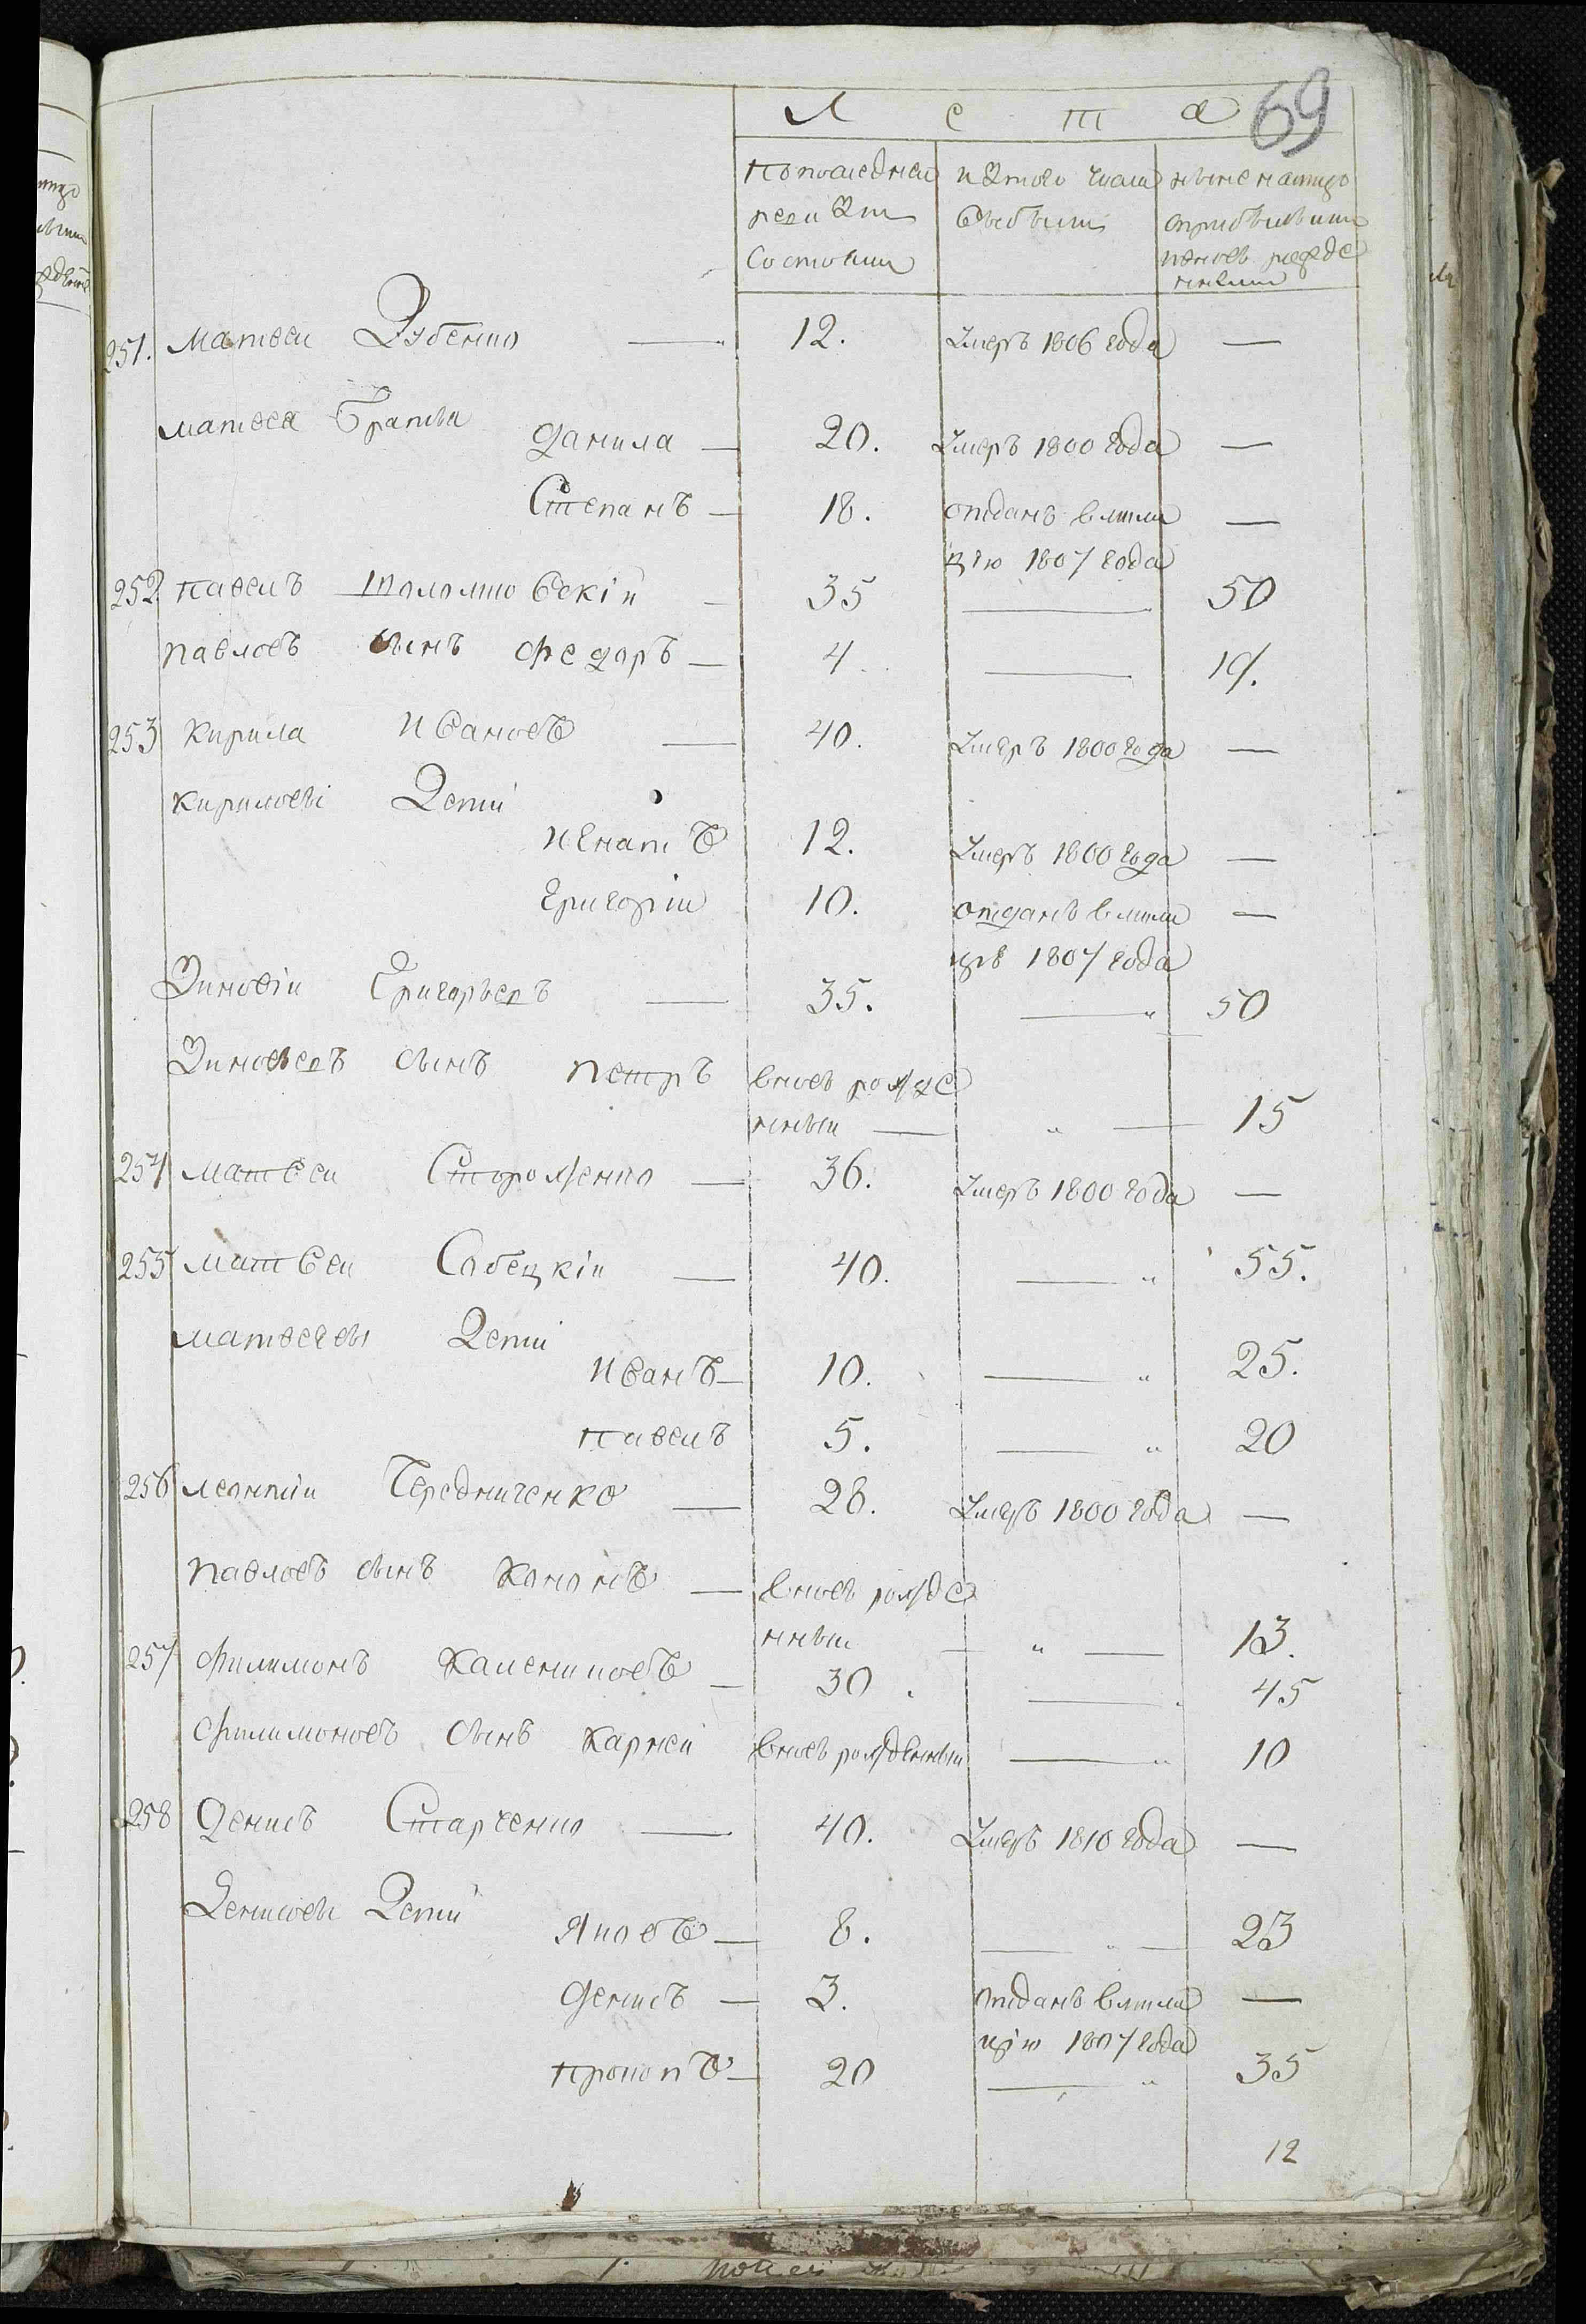 Л е т а 69
По последней из того числа ныне налицо
ревизии выбыли с прибылыми
состояли и вновь рожде
нными
251. Матвей Дубенко — 12. Умеръ 1806 года —
Матвея Братья
Данила — 20. Умеръ 1800 года —
Степанъ — 18. отданъ в мили —
цию 1807 года
252 Павелъ — 35 — 50
Павловъ сынъ Федоръ — 4. — 19.
253 Кирила Ивановъ — 40. Умеръ 1800 года —
Кириловы Дети
Игнатъ 12. Умеръ 1800 года —
Григорій 10. отданъ в мили —
цію 1807 года
Зиновій Григорьевъ — 35. — " 50
Зиновьевъ сынъ Петръ вновь рожде
нный — " — 15
254 Матвей Стороженко — 36. Умеръ 1800 года —
255 Матвей Собецкій — 40. — " 55.
Матвеевы Дети
Иванъ — 10. — " 25.
Павелъ 5. — " 20
256 Леонтій Чередниченко — 28. Умеръ 1800 года —
Павловъ сынъ Кононъ — вновь рожде
нный — " — 13.
257 Филимонъ Калениковъ — 30. — 45
Филимоновъ сынъ Карней вновь рожденный — " 10
258 Денисъ Старченко — 40. Умеръ 1810 года —
Денисовы Дети
Яковъ — 8. — " — 23
Денисъ — 3. отданъ в мили —
цію 1807 года
Прокопъ — 20 — " 35
12